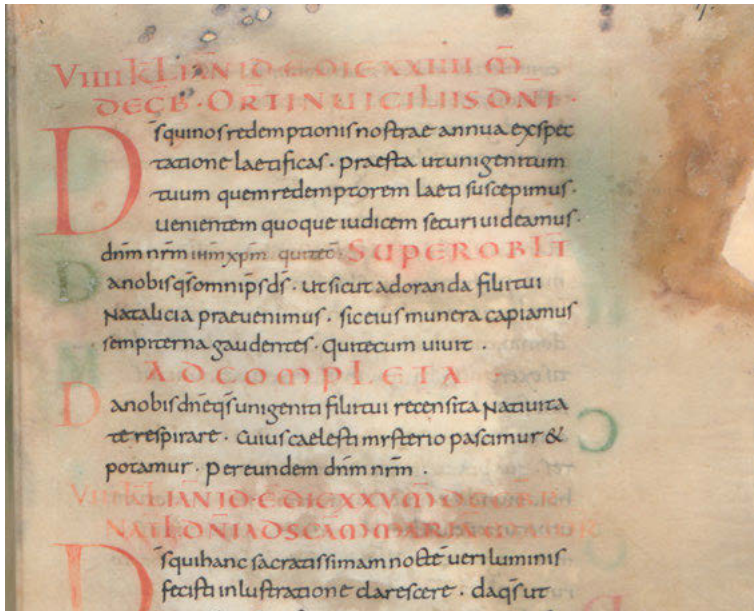 VIIII KL IAN ID Ē DIE XXIIII M̄
DECB̄ · ORT IN UICILIIS DN̄I ·
Ds̄ qui nos redemptionis nostrae annua exspec
tatione laetificas · praesta ut unigenitum
tuum quem redemptorem laeti suscepimus ·
uenientem quoque iudicem securi uideamus ·
dn̄m nr̄m ihm̄ xpm̄ qui tec̄ · SUPER OBLT
Da nobis qs̄ omnip̄s ds̄ · ut sicut adoranda filii tui
Natalicia praeuenimus · sic eius munera capiamus
sempiterna gaudentes · qui tecum uiuit ·
AD COMPLETA
Da nobis dn̄e qs̄ unigeniti filii tui recensita natiuita
te respirare · cuius caelesti mysterio pascimur &
potamur · per eundem dn̄m nr̄m ·
VIII KL IAN ID Ē DIE XXV M̄ DECB̄
NATL DN̄I AD SCAM MARIAM
Ds̄ qui hanc sacratissimam nocte ueri luminis
fecisti inlustratione clarescere · da qs̄ ut